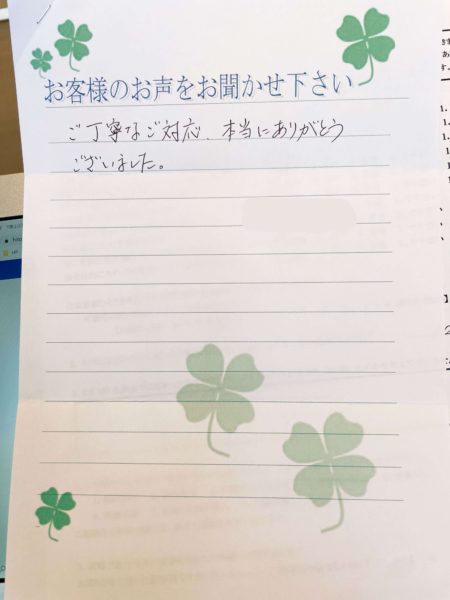 お客様のお声をお聞かせ下さい
ご丁寧なご対応、本当にありがとう
ございました。